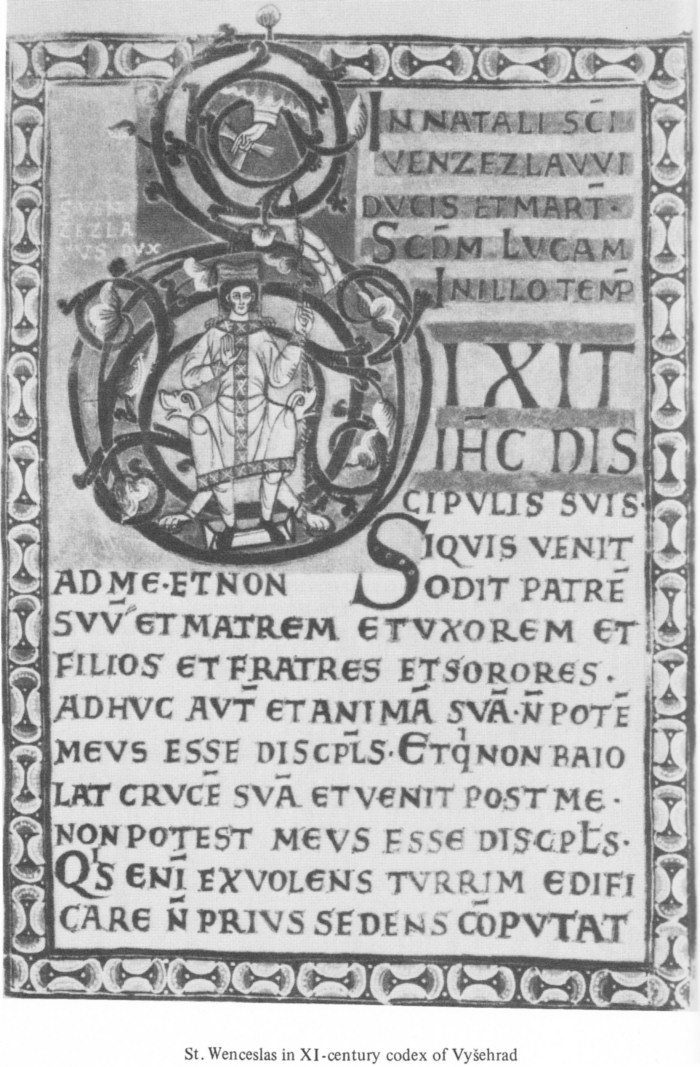 IN NATALI SC̄I
VENZEZLAVVI
DVCIS ET MART̄·
SCD̄M LVCAM
IN ILLO TEMP̄
ZIZLA
DVX
IXIT
IH̄C DIS
CIPVLIS SVIS·
SIQVIS VENIT
AD ME·ET NON ODIT PATRĒ
SVV̄ ET MATREM ET VXOREM ET
FILIOS ET FRATRES ET SORORES·
ADHVC AVT̄ ET ANIMĀ SVĀ·N̄ POTĒ
MEVS ESSE DISCPL̄S·ET qͥ NON BAIO
LAT CRVCĒ SVĀ ET VENIT POST ME·
NON POTEST MEVS ESSE DISCPL̄S·
QͥS ENĪ EX VOLENS TVRRIM EDIFI
CARE N̄ PRIVS SEDENS CŌPVTAT
St. Wenceslas in XI-century codex of Vyšehrad